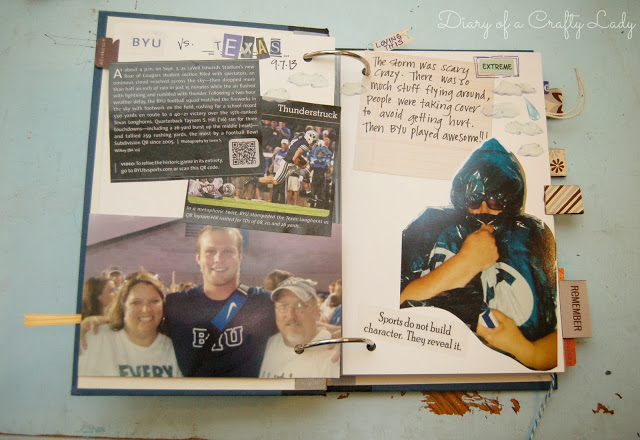 Diary of a Crafty Lady
BYU vs. TEXAS
9.7.13
At about 4 p.m. on Sept. 7, as LaVell Edwards Stadium's new
Roar of Cougars student section filled with spectators, an
ominous cloud marched across the sky—then dropped more
than half an inch of rain in just 15 minutes while the air flashed
with lightning and rumbled with thunder. Following a two-hour
weather delay, the BYU football squad matched the fireworks in
the sky with footwork on the field, rushing for a school-record
550 yards on route to a 40–21 victory over the 15th-ranked
Texas Longhorns. Quarterback Taysom S. Hill ('16) ran for three
touchdowns—including a 26-yard burst up the middle
and tallied 259 rushing yards, the most by a Football Bowl
Subdivision QB since 2005.
VIDEO: To relive the historic game in its entirety,
go to BYUtvsports.com or scan this QR code.
Thunderstruck
In a metaphoric twist, BYU stampeded the Texas Longhorns as
QB Taysom Hill rushed for TDs of 68, 20, and 26 yards.
BYU
EVERY
LOVING
THIS
EXTREME
The storm was scary
crazy. There was so
much stuff flying around,
people were taking cover
to avoid getting hurt.
Then BYU played awesome!!!
Sports do not build
character. They reveal it.
REMEMBER